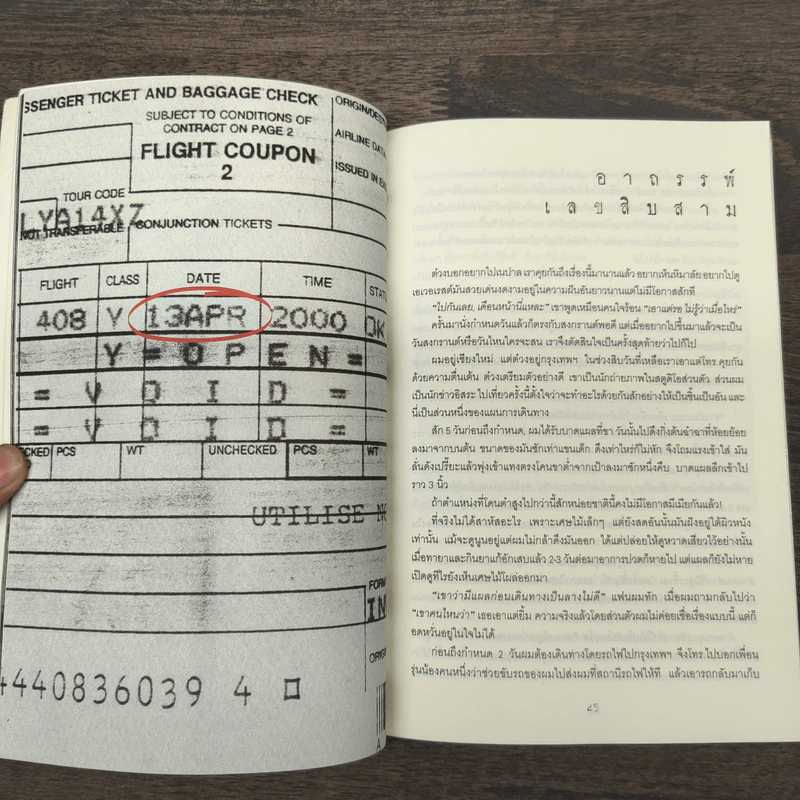 SSENGER TICKET AND BAGGAGE CHECK
SUBJECT TO CONDITIONS OF
CONTRACT ON PAGE 2
FLIGHT COUPON
2
ORIGIN/DEST
AIRLINE DATA
ISSUED IN EX
TOUR CODE
LYA14X7
NOT TRANSFERABLE
CONJUNCTION TICKETS
FLIGHT CLASS DATE TIME STAT
408 Y 13APR 2000 OK
Y=OPEN=
= V O I D =
= V O I D =
CKED PCS WT UNCHECKED PCS WT
UTILISE NO
FORM
IN
ORIGI
4440836039 4
A
อาถรรพ์
เลขสิบสาม
ต่วงบอกอยากไปเนปาล เราคุยกันถึงเรื่องนี้มานานแล้ว อยากเห็นหิมาลัย อยากไปดู
เอเวอเรสต์มันสวยเด่นงดงามอยู่ในความฝันอันยาวนานแต่ไม่มีโอกาสสักที
“ไปกันเลย, เดือนหน้านี่แหละ” เขาพูดเหมือนคนใจร้อน “เอาแต่รอ ไม่รู้ว่าเมื่อไหร่”
ครั้นมานั่งกำหนดวันแล้วก็ตรงกับสงกรานต์พอดี แต่เมื่ออยากไปขึ้นมาแล้วจะเป็น
วันสงกรานต์หรือวันไหนใครจะสน เราจึงตัดสินใจเป็นครั้งสุดท้ายว่าไปก็ไป
ผมอยู่เชียงใหม่ แต่ต่วงอยู่กรุงเทพฯ ในช่วงสิบวันที่เหลือเราเอาแต่โทร.คุยกัน
ด้วยความตื่นเต้น ต่วงเตรียมตัวอย่างดี เขาเป็นนักถ่ายภาพในสตูดิโอส่วนตัว ส่วนผม
เป็นนักข่าวอิสระ ไปเที่ยวครั้งนี้ตั้งใจว่าจะทำอะไรด้วยกันสักอย่างให้เป็นชิ้นเป็นอัน และ
นี่เป็นส่วนหนึ่งของแผนการเดินทาง
สัก 5 วันก่อนถึงกำหนด, ผมได้รับบาดแผลที่ขา วันนั้นไปดึงกิ่งต้นฉำฉาที่ห้อยย้อย
ลงมาจากบนต้น ขนาดของมันซักเท่าแขนเด็ก ดึงเท่าไหร่ก็ไม่หัก จึงโถมแรงเข้าใส่ มัน
ลั่นดังเปรี๊ยะแล้วพุ่งเข้าแทงตรงโคนขาต่ำจากเป้าลงมาซักหนึ่งคืบ บาดแผลลึกเข้าไป
ราว 3 นิ้ว
ถ้าตำแหน่งที่โดนตำสูงไปกว่านี้สักหน่อยชาตินี้คงไม่มีโอกาสมีเมียกันแล้ว!
ที่จริงไม่ได้สาหัสอะไร เพราะเศษไม้เล็กๆ แต่ยังสดอันนั้นมันฝังอยู่ใต้ผิวหนัง
เท่านั้น แม้จะดูนูนอยู่แต่ผมไม่กล้าดึงมันออก ได้แต่ปล่อยให้ดูหวาดเสียวไว้อย่างนั้น
เมื่อทายาและกินยาแก้อักเสบแล้ว 2-3 วันต่อมาอาการปวดก็หายไป แต่แผลก็ยังไม่หาย
เปิดดูทีไรยังเห็นเศษไม้โผล่ออกมา
“เขาว่ามีแผลก่อนเดินทางเป็นลางไม่ดี” แฟนผมทัก เมื่อผมถามกลับไปว่า
“เขาคนไหนวะ” เธอเอาแต่ยิ้ม ความจริงแล้วโดยส่วนตัวผมไม่ค่อยเชื่อเรื่องแบบนี้ แต่ก็
อดหวั่นอยู่ในใจไม่ได้
ก่อนถึงกำหนด 2 วันผมต้องเดินทางโดยรถไฟไปกรุงเทพฯ จึงโทร.ไปบอกเพื่อน
รุ่นน้องคนหนึ่งว่าช่วยขับรถของผมไปส่งผมที่สถานีรถไฟให้ที แล้วเอารถกลับมาเก็บ
25